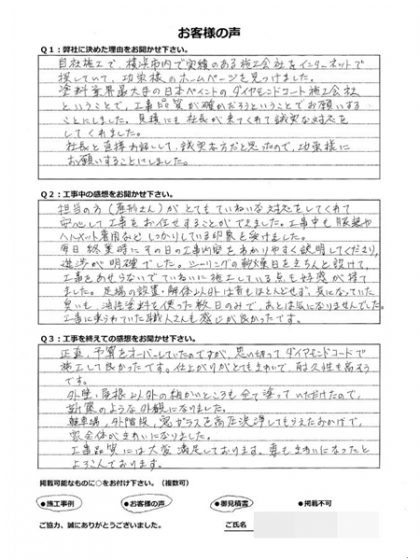 お客様の声
Q1：弊社に決めた理由をお聞かせ下さい。
自社施工で、横浜市内で実績のある施工会社をインターネットで
探していて、功栄様のホームページを見つけました。
塗料業界最大手の日本ペイントのダイヤモンドコート施工会社
ということで、工事品質が確かだろうということでお願いする
ことにしました。見積にも社長が来てくれて誠実な対応を
してくれました。
社長と直接お話しして、誠実な方だと思ったので、功栄様に
お願いすることにしました。
Q2：工事中の感想をお聞かせ下さい。
担当の方（さん）がとてもていねいな対応をしてくれて
安心して工事をお任せすることができました。工事中も服装や
ヘルメット着用などしっかりしている印象を受けました。
毎日終業時にその日の工事内容をわかりやすく説明してくださり、
進渉が明確でした。シーリングの乾燥日をきちんと設けて
工事をあせらないでていねいに施工している点も好感が持て
ました。足場の設置・解体以外は音もほとんどせず、気になっていた
臭いも、油性塗料を使った数日のみで、あとは気になりませんでした。
工事に来られていた職人さんも感じが良かったです。
Q3：工事を終えての感想をお聞かせ下さい。
正直、予算をオーバーしていたのですが、思い切ってダイヤモンドコートで
施工して良かったです。仕上がりがとてもきれいで、耐久性も高そう
です。
外壁、屋根以外の細かいところも全て塗っていただけたので、
新築のような外観になりました。
駐車場、外階段、窓ガラスを高圧洗浄してもらえたおかげで、
家全体がきれいになりました。
工事品質には大変満足しております。妻もきれいになったと
よろこんでおります。
掲載可能なものに○をお付け下さい。（複数可）
●施工事例 ●お客様の声 ●御見積書 ●掲載不可
ご協力、誠にありがとうございました。 ご氏名